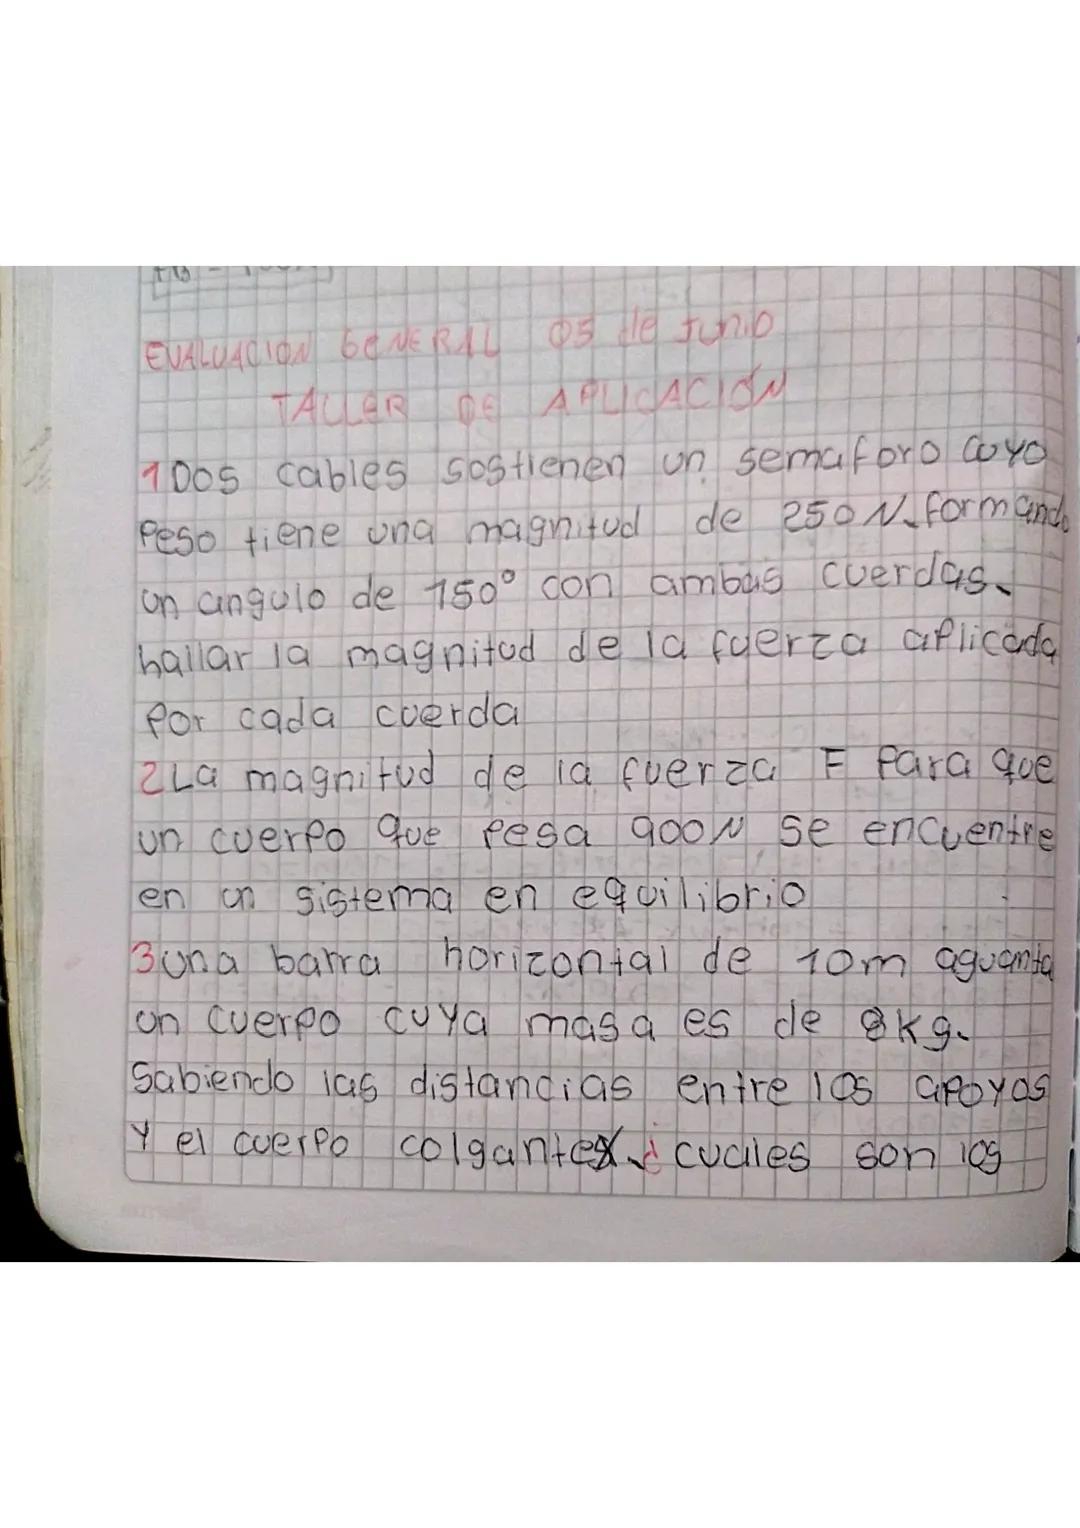 EVALUACION GENERAL 05 de Junio
TALLER DE APLICACIÓN
1 Dos cables sostienen un semaforo cuyo
Peso tiene una magnitud de 250 N. formando
un angulo de 150° con ambas cuerdas.
hallar la magnitud de la fuerza aplicada
por cada cuerda
2 La magnitud de la fuerza F para que
un cuerpo que pesa 900N se encuentre
en un sistema en equilibrio
3 una barra horizontal de 10m aguanta
un cuerpo cuya masa es de 8kg.
Sabiendo las distancias entre los apoyos
y el cuerpo colgante. ¿ cuales son los